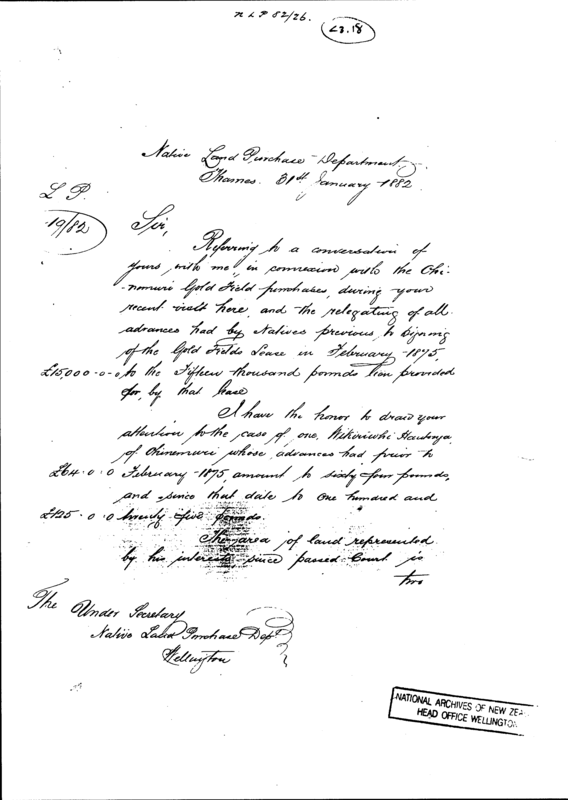 N L P 82/26.
23.18
Native Land Purchase Department
Thames. 31st January 1882.
L P.
19/82
Sir,
Referring to a conversation of
yours, with me, in connexion with the Ohi-
nemuri Gold Field purchases, during your
recent visit here, and the relegating of all
advances had by Natives previous, to signing
of the Gold Fields Lease in February 1875,
£15,000-0-0 to the Fifteen thousand pounds lien provided
for, by that lease
I have the honor to draw your
attention to the case of one,
of Ohinemuri whose, advances had prior to
£64.0.0 February 1875, amount to sixty four pounds,
and since that date to one hundred and
£125.0.0 twenty five pounds.
The area of land represented
by his interests since passed Court is
two
The Under Secretary
Native Land Purchase Dept
Wellington
NATIONAL ARCHIVES OF NEW ZEA
HEAD OFFICE WELLINGTON